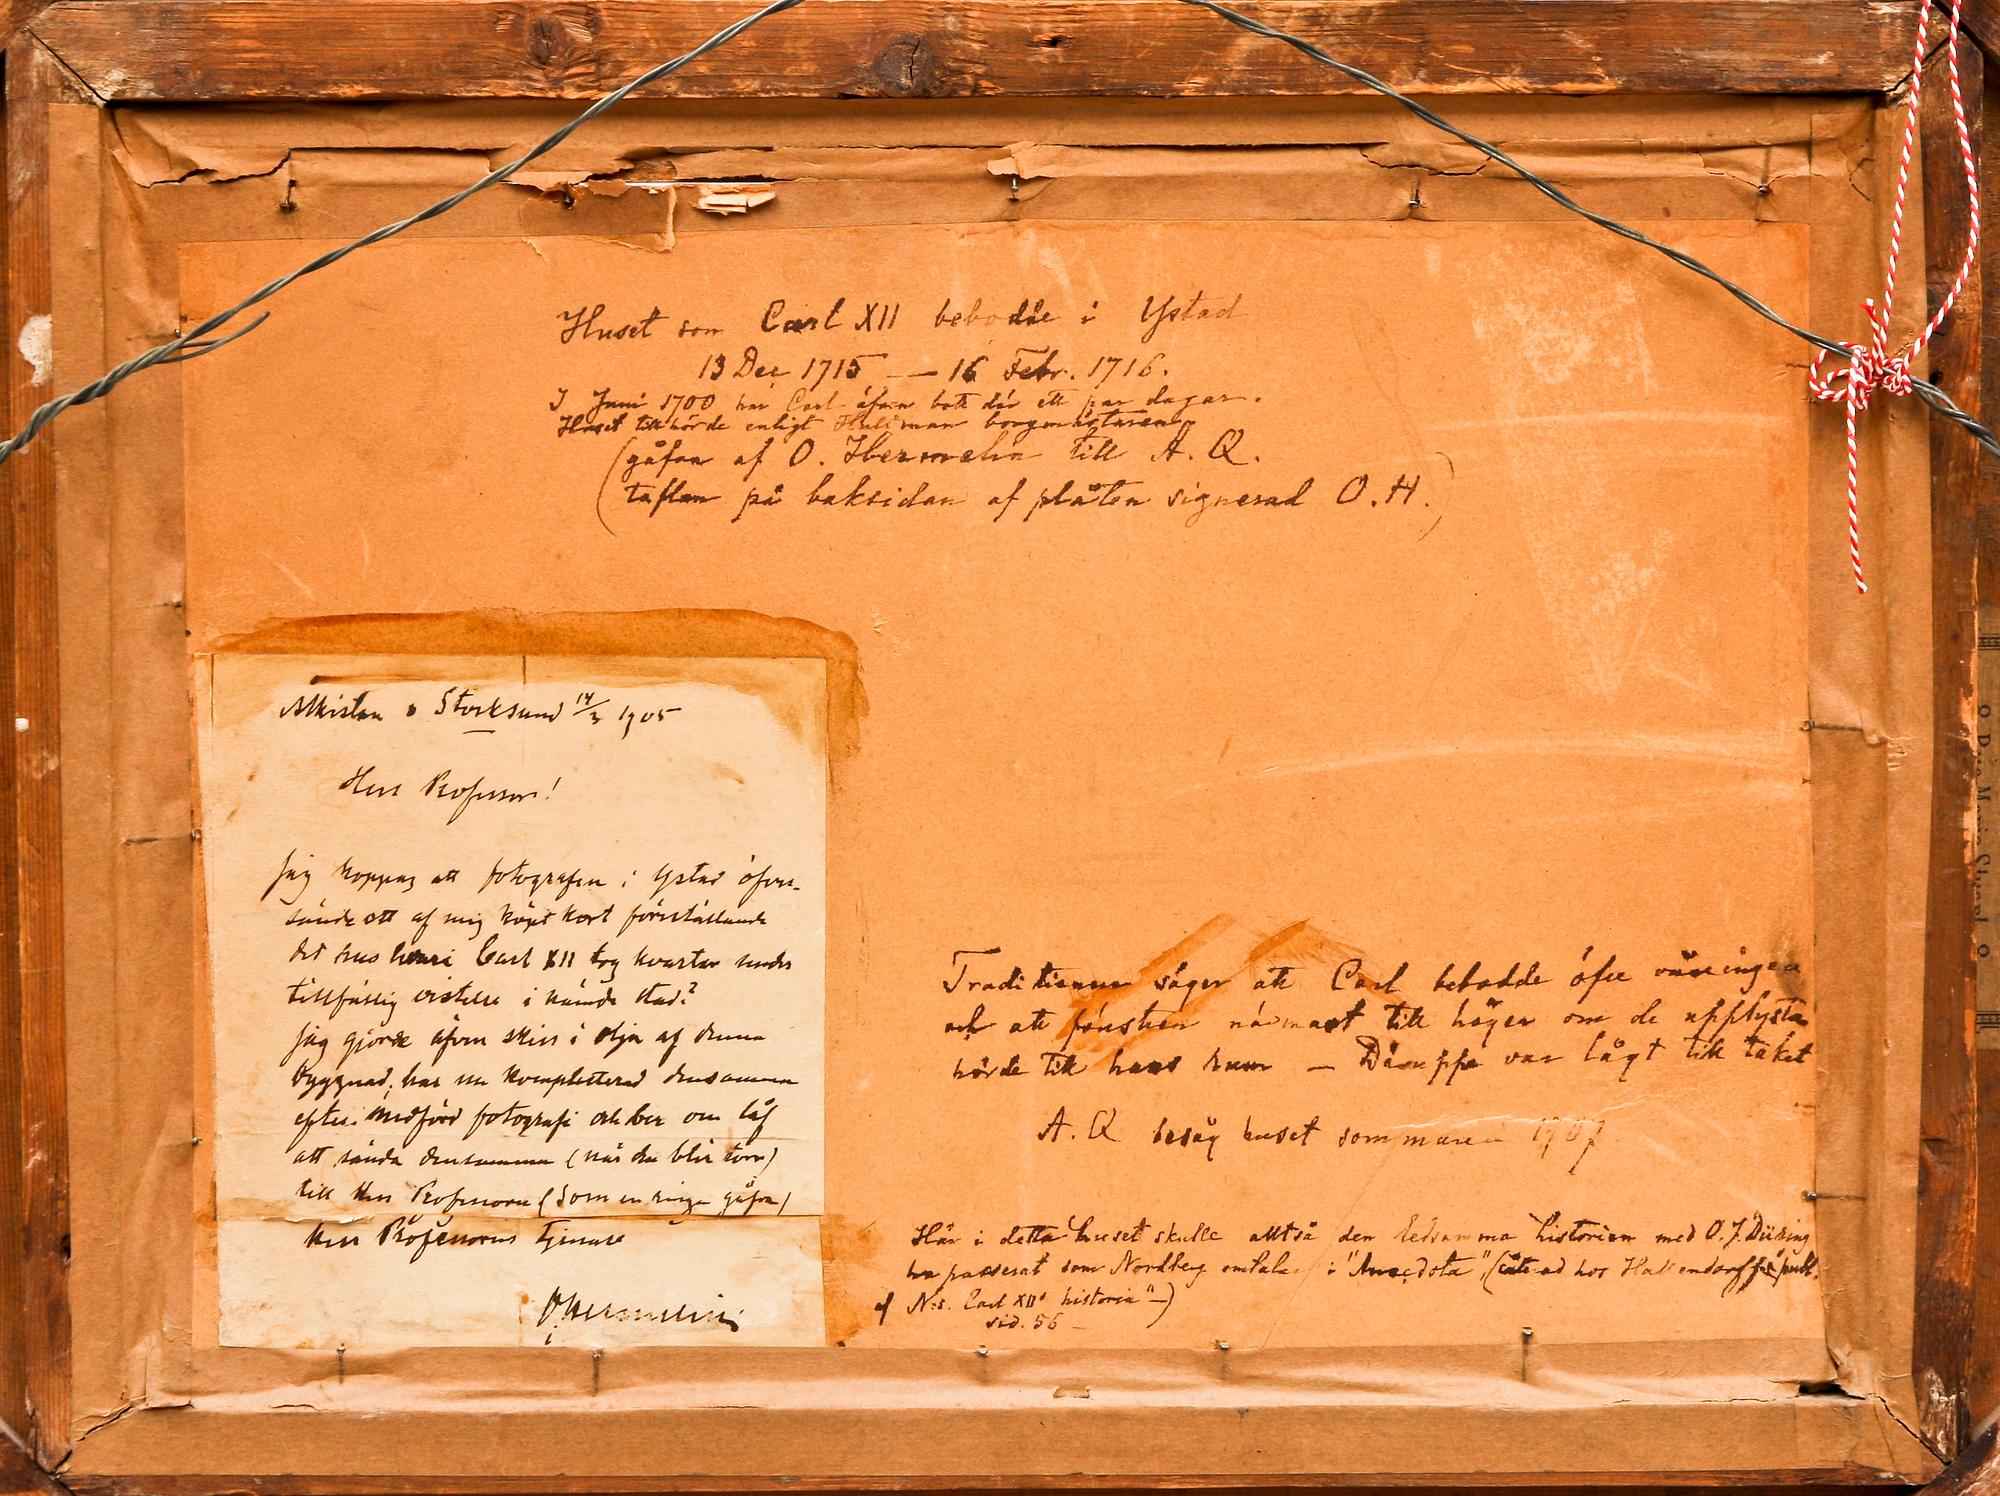 Huset som Carl XII bebodde i Ystad
13 Dec 1715 — 16 Febr. 1716.
I Juni 1700 har Carl äfven bott där ett par dagar.
Huset tillhörde enligt borgmästaren
(gåfva af O. Hermelin till A. Q.
(taflan på baksidan af plåten signerad O. H.)
Storksund 14/3 1905
Herr Professor!
Jag hoppas att fotografen i Ystad öfver-
sände ett af mig köpt kort föreställande
det hus hvari Carl XII tog kvarter under
tillfällig vistelse i nämnde stad?
Jag gjorde äfven skiss i olja af denna
byggnad, har nu kompletterad densamma
efter medförd fotografi och ber om låf
att sända densamma (när den blir torr)
till Herr Professorn (som en ringa gåfva)
Herr Professorns tjenare
O Hermelin
Traditionen säger att Carl bebodde öfre våningen
och att fönstren närmast till höger om de upplysta
hörde till hans rum — Däruppe var lågt till taket
A. Q besåg huset sommaren 1907.
Här i detta huset skulle alltså den ledsamma historien med O. J. Düring
ha passerat som Nordberg omtalar i "Anecdota", (citerad hos Hallendorff publ.
af N:s. Carl XII's historia" —)
sid. 56 —